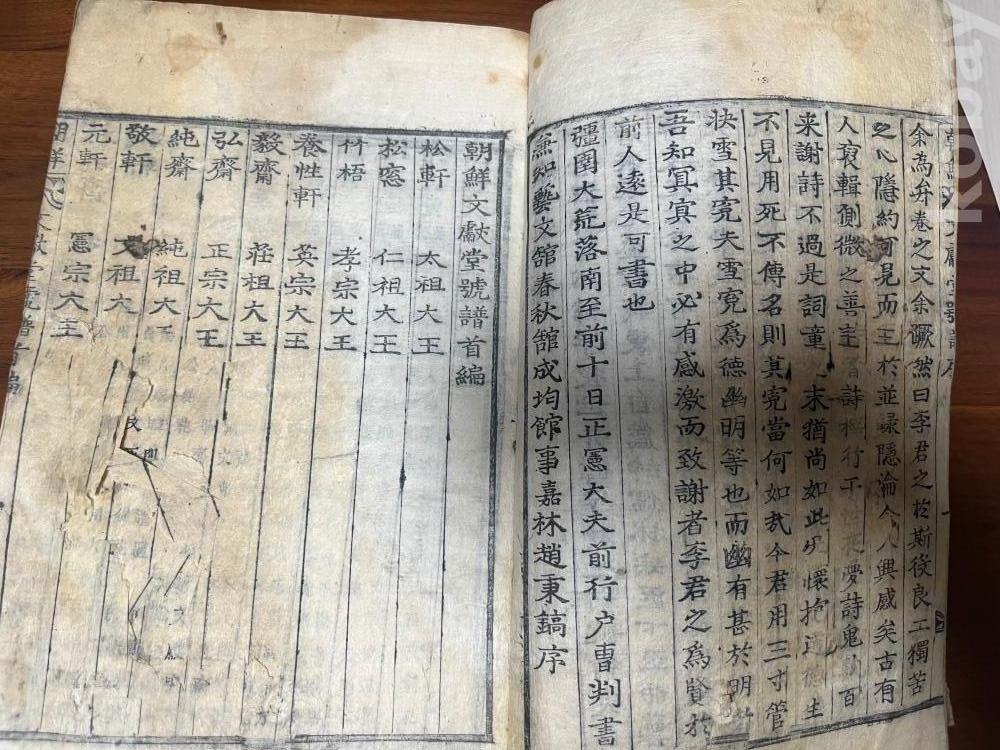 余為弁卷之文余蹶然曰李君之於斯役良工獨苦
之心隱約可見而主於並錄隱淪令人興感矣古有
人裒輯側微之善 詩 行于 夢詩鬼 百
來謝詩不過是詞章 末猶尚如此 懷抱 德 生
不見用死不傳名則其寃當何如哉今君用三寸管
決雪其寃夫雪寃爲德幽明等也而幽有甚於明
吾知冥冥之中必有感激而致謝者李君之爲賢於
前人遠是可書也
彊圉大荒落南至前十日正憲大夫前行户曹判書
兼知藝文舘春秋舘成均館事嘉林趙秉鎬序
朝鮮文獻堂號譜首編
松軒 太祖大王
松窓 仁祖大王
竹梧 孝宗大王
養性軒 英宗大王
毅齋 莊祖大王
弘齋 正宗大王
純齋 純祖大王
敬軒 文祖大
元軒 憲宗大王
kobay